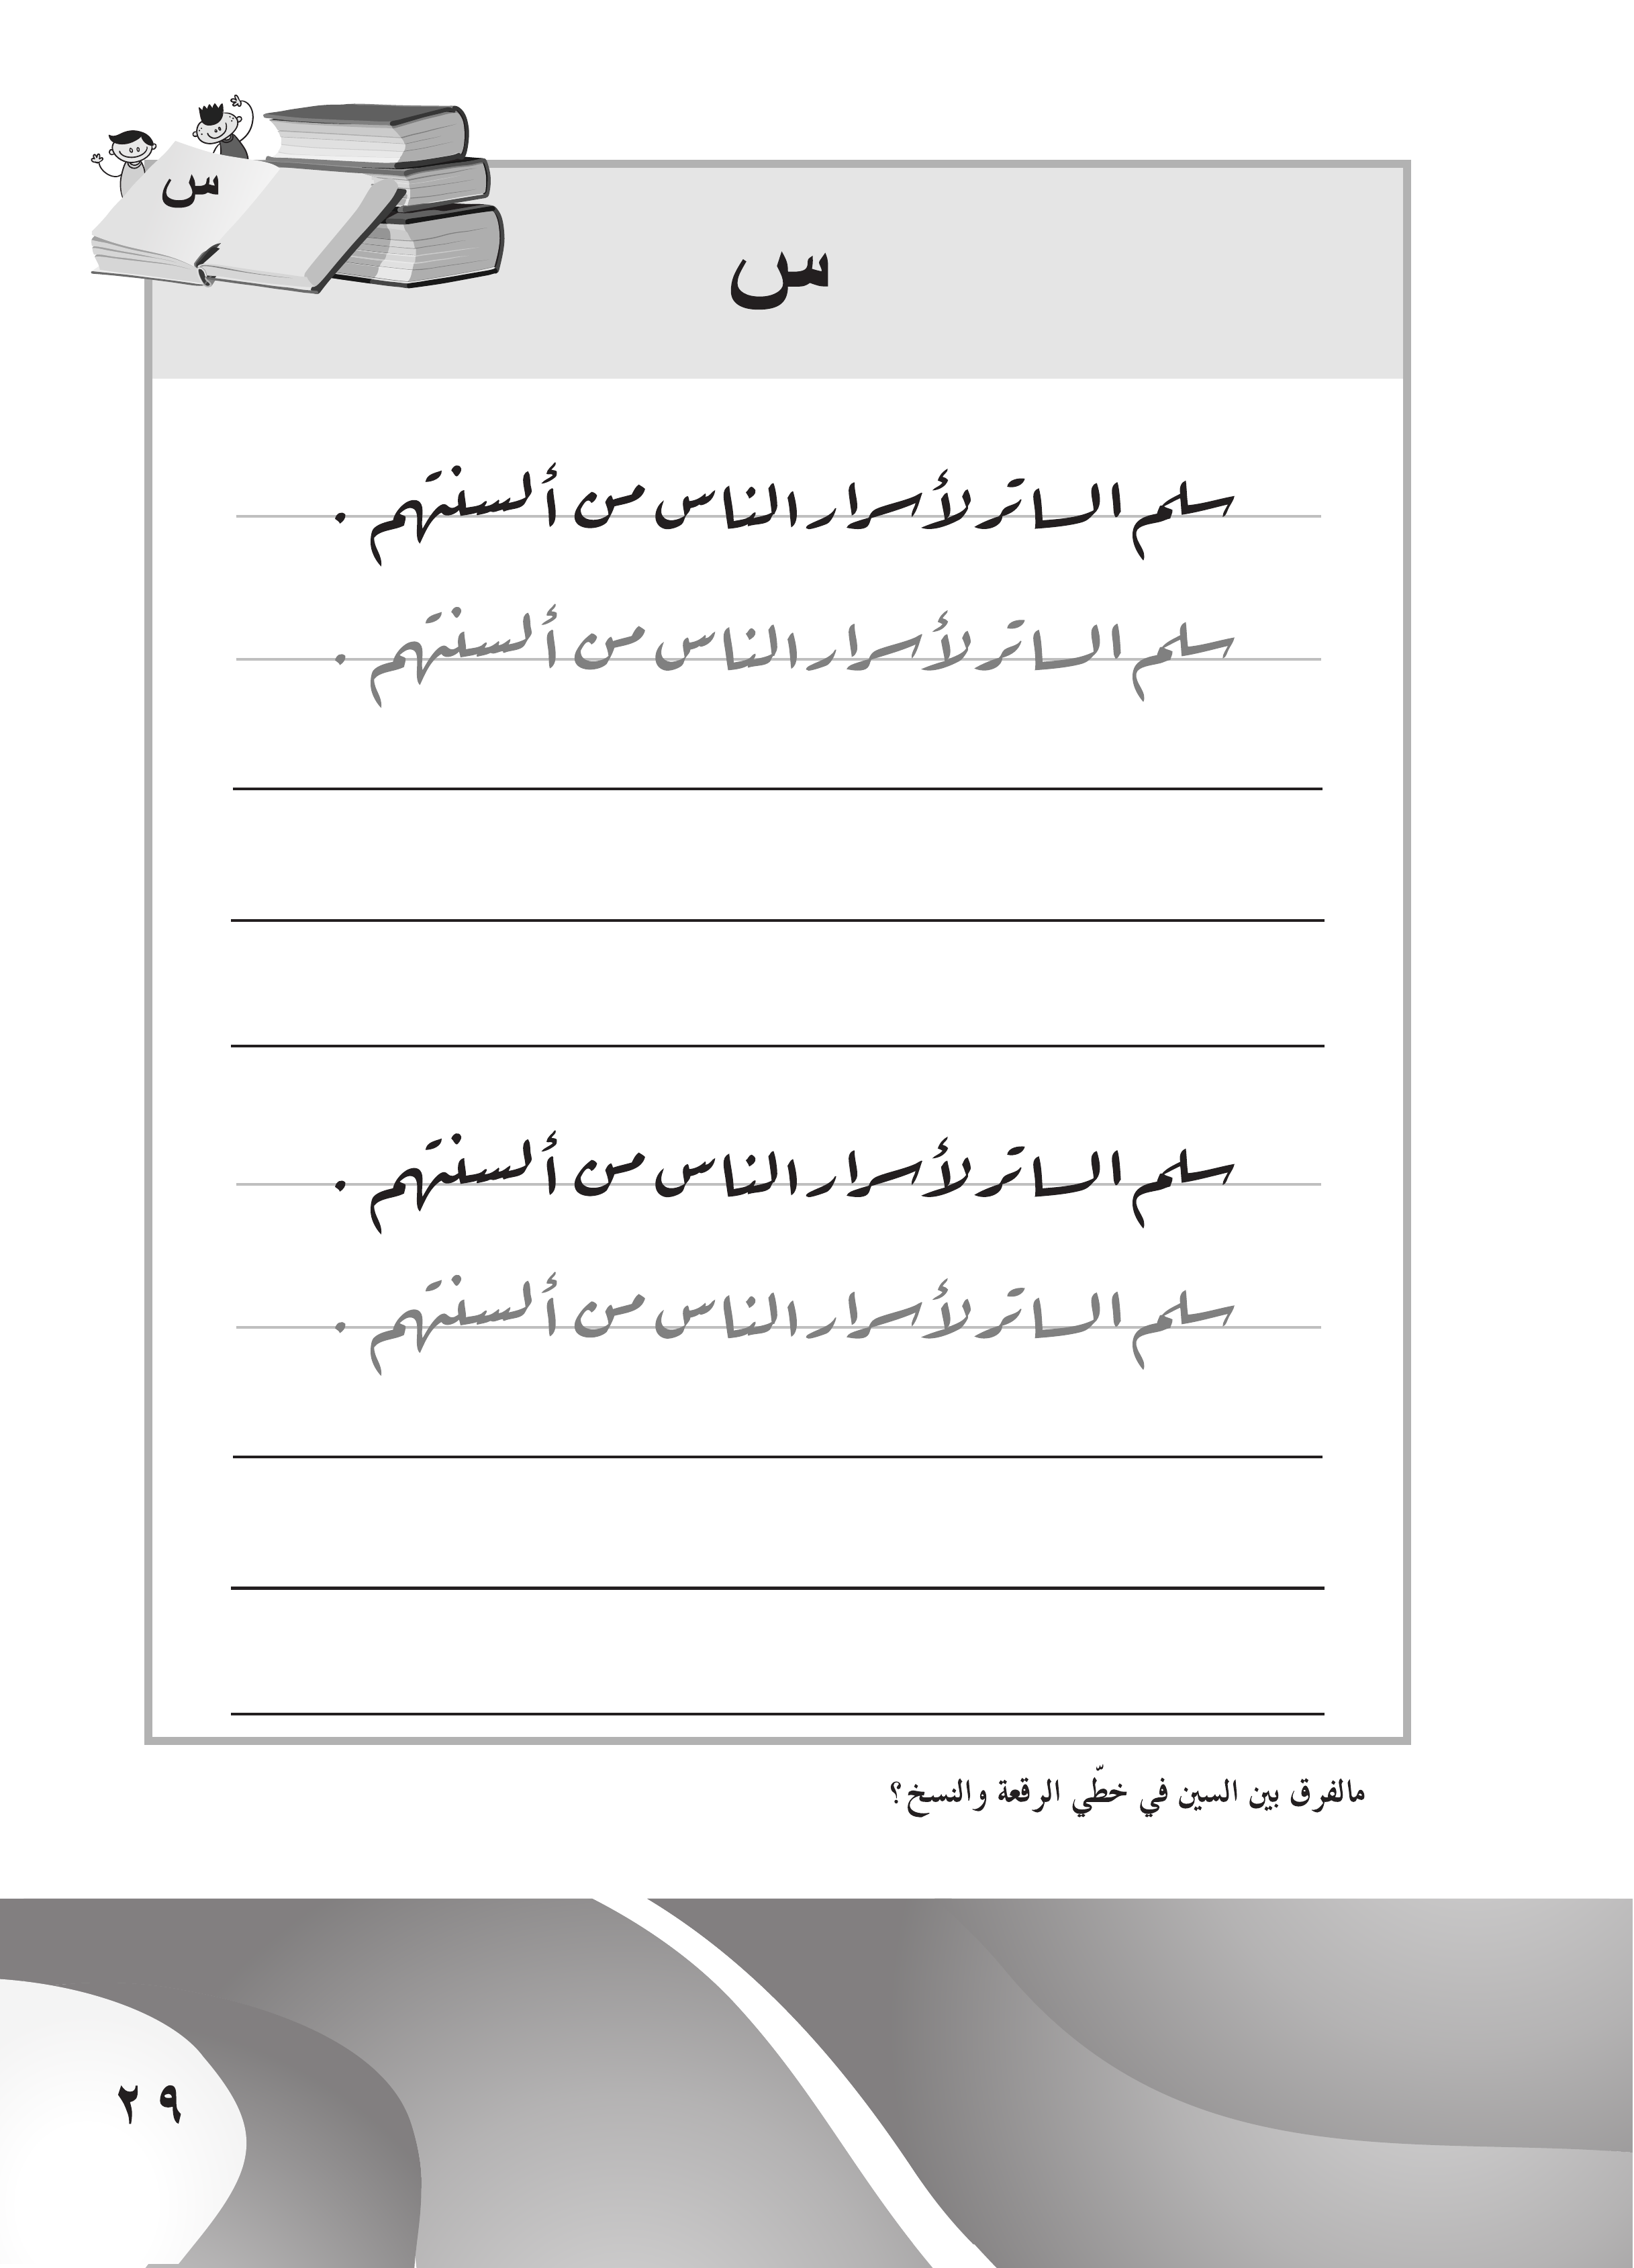 س
س
سلم الساتر لأسرار الناس من ألسنتهم .
سلم الساتر لأسرار الناس من ألسنتهم .
سلم الساتر لأسرار الناس من ألسنتهم .
سلم الساتر لأسرار الناس من ألسنتهم .
مالفرق بين السين في خطّي الرقعة والنسخ؟
٢٩